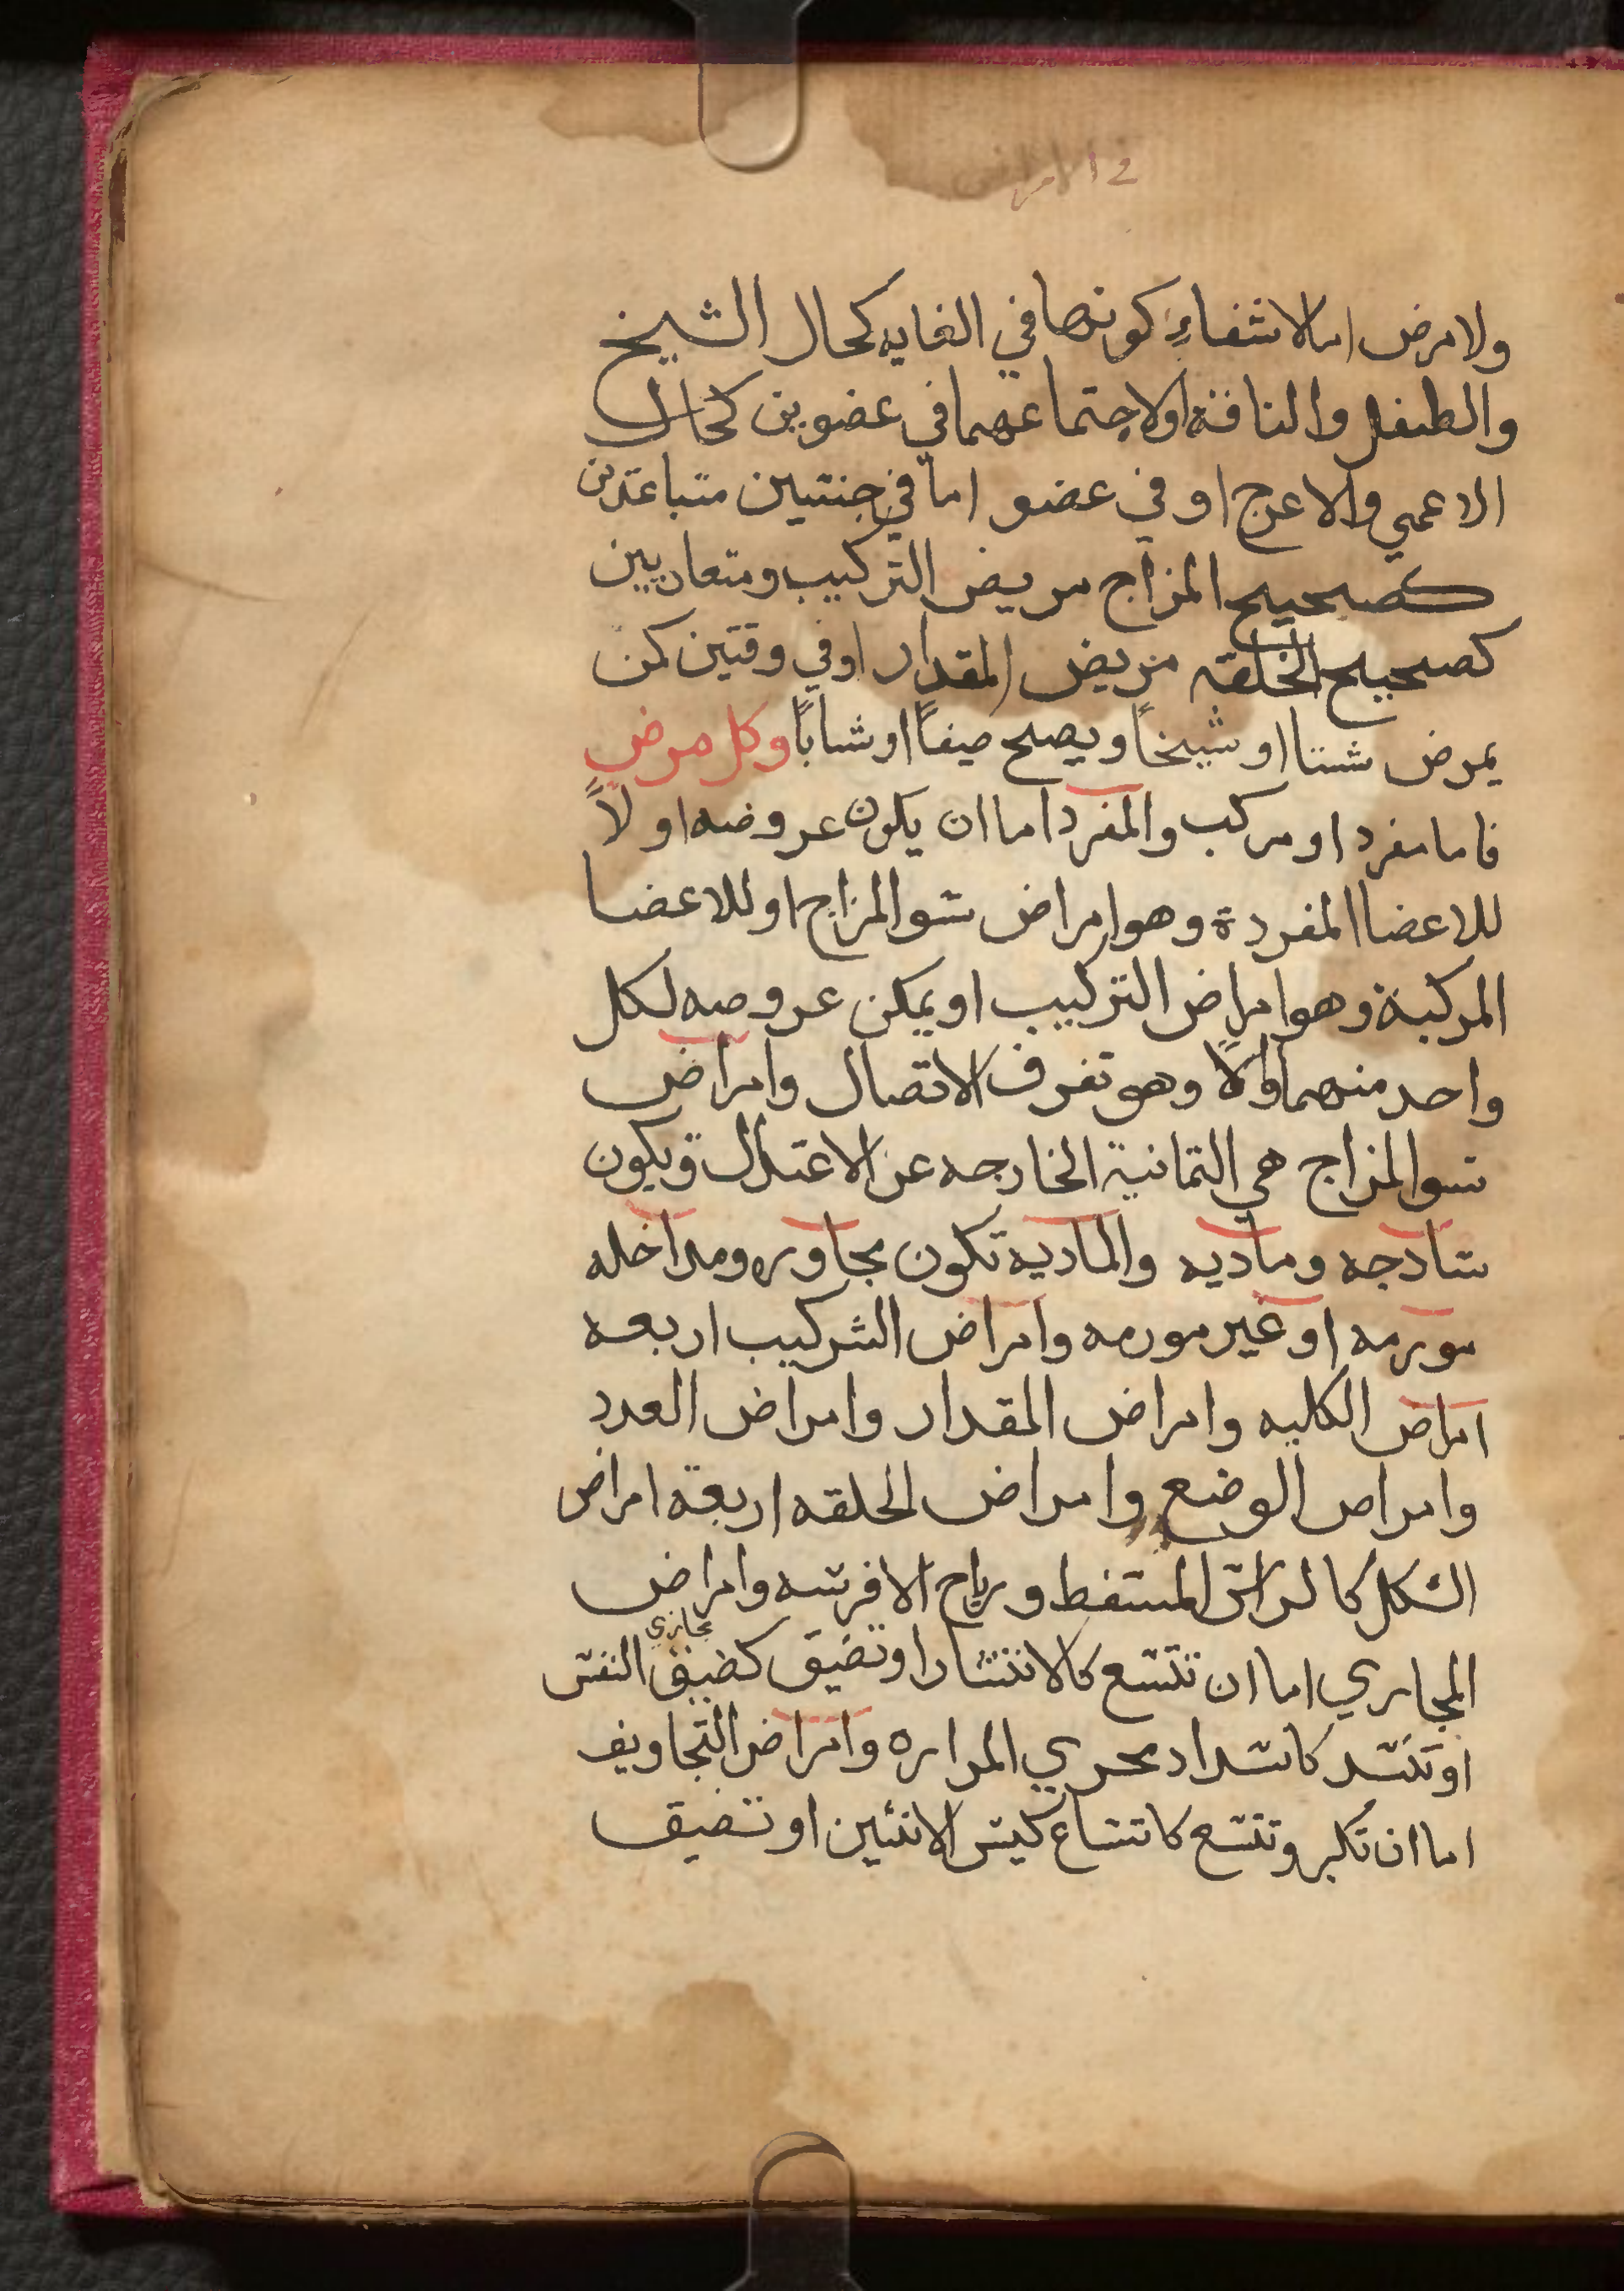 ولا مرض اما لانتفاءِ كونهما في الغايه كحال الشيخ
والطفل والناقه او لاجتماعهما في عضوين كحال
الاعمي والاعرج او في عضو اما في جنسين متباعدين
كصحيح المزاج مريض التركيب ومتقاربين
كصحيح الخلقه مريض المقدار او في وقتين كمن
يمرض شتا او شيخاً ويصح صيفاً او شاباً وكل مرض
فاما مفرد او مركب والمفرد اما ان يكون عروضه اولاً
للاعضا المفردة وهو امراض سو المزاج او للاعضا
المركبة وهو امراض التركيب او يمكن عروضه لكل
واحد منهما اولاً وهو تفرق الاتصال وامراض
سو المزاج هي الثمانية الخارجه عن الاعتدال ويكون
سادجه وماديه والماديه تكون مجاوره ومداخله
مورمه او غير مورمه وامراض التركيب اربعه
امراض الكليه وامراض المقدار وامراض العدد
وامراض الوضع وامراض الخلقه اربعة امراض
الشكل كالراس المسفط ورياح الافرسه وامراض
المجاري اما ان تتسع كالانتشار او تضيق كضيق مجاري النفس
او تنسد كانسداد مجري المراره وامراض التجاويف
اما ان تكبر وتتسع كاتساع كيس الانثيين او تضيق